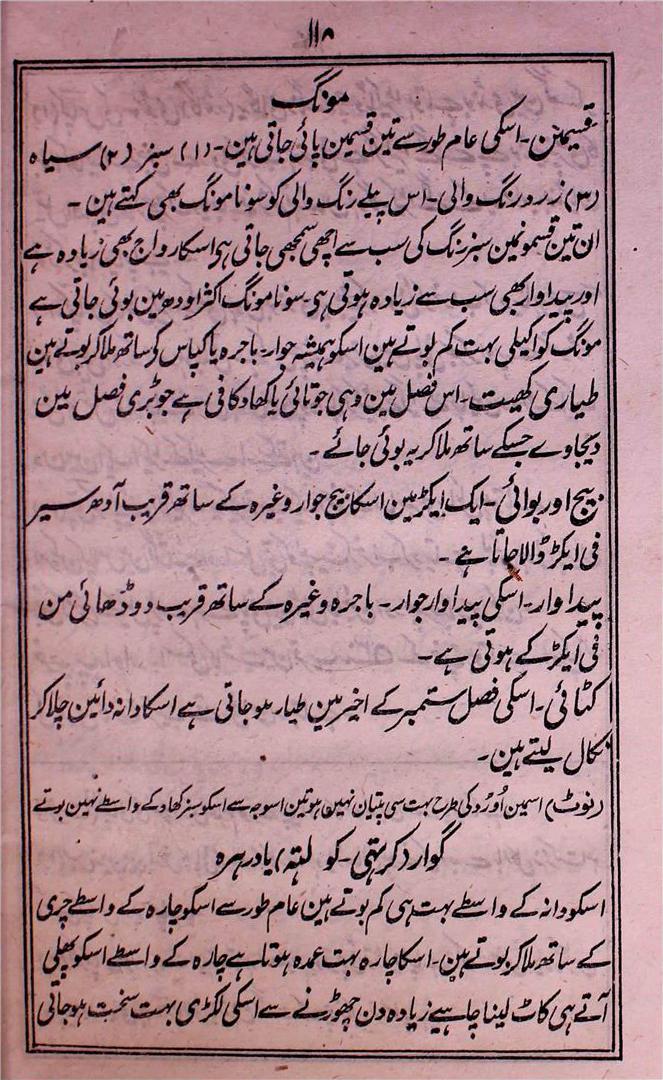 ۱۱۸
مونگ
قسیمن۔ اسکی عام طور سے تین قسمین پائی جاتی ہین۔ (۱) سبز (۲) سیاہ
(۳) زرد رنگ والی۔ اس پیلے رنگ والی کو سونا مونگ بھی کہتے ہین۔
ان تین قسمونمین سبز رنگ کی سب سے اچھی سمجھی جاتی ہی اسکا رواج بھی زیادہ ہے
اور پیداوار بھی سب سے زیادہ ہوتی ہی۔ سونا مونگ اکثر اودھ مین بوئی جاتی ہے
مونگ کو اکیلی بہت کم بوتے ہین اسکو ہمیشہ جوار۔ باجرہ یا کپاس کے ساتھ ملا کر بوتے ہین
طیاری کھیت۔ اس فصل مین وہی جوتائی یا کھاد کافی ہے جو بڑی فصل مین
دیجاوے جسکے ساتھ ملا کر یہ بوئی جائے۔
بیج اور بوائی۔ ایک ایکڑ مین اسکا بیج جوار وغیرہ کے ساتھ قریب آدھ سیر
فی ایکڑ ڈالا جاتا ہے۔
پیداوار۔ اسکی پیداوار جوار۔ باجرہ وغیرہ کے ساتھ قریب دو ڈھائی من
فی ایکڑ کے ہوتی ہے۔
کٹائی۔ اسکی فصل ستمبر کے اخیر مین طیار ہو جاتی ہے اسکا دانہ دائین چلا کر
نکال لیتے ہین۔
(نوٹ) اسمین اُورد کی طرح بہت سی پتیان نہین ہوتین اسوجہ سے اسکو سبز کھاد کے واسطے نہین بوتے
گوار (کرتہی۔ کو لتہ) یا در ہرہ
اسکو دانہ کے واسطے بہت ہی کم بوتے ہین عام طور سے اسکو چارہ کے واسطے چری
کے ساتھ ملا کر بوتے ہین۔ اسکا چارہ بہت عمدہ ہوتا ہے چارہ کے واسطے اسکو پھلی
آتے ہی کاٹ لینا چاہیے زیادہ دن چھوڑنے سے اسکی لکڑی بہت سخت ہو جاتی